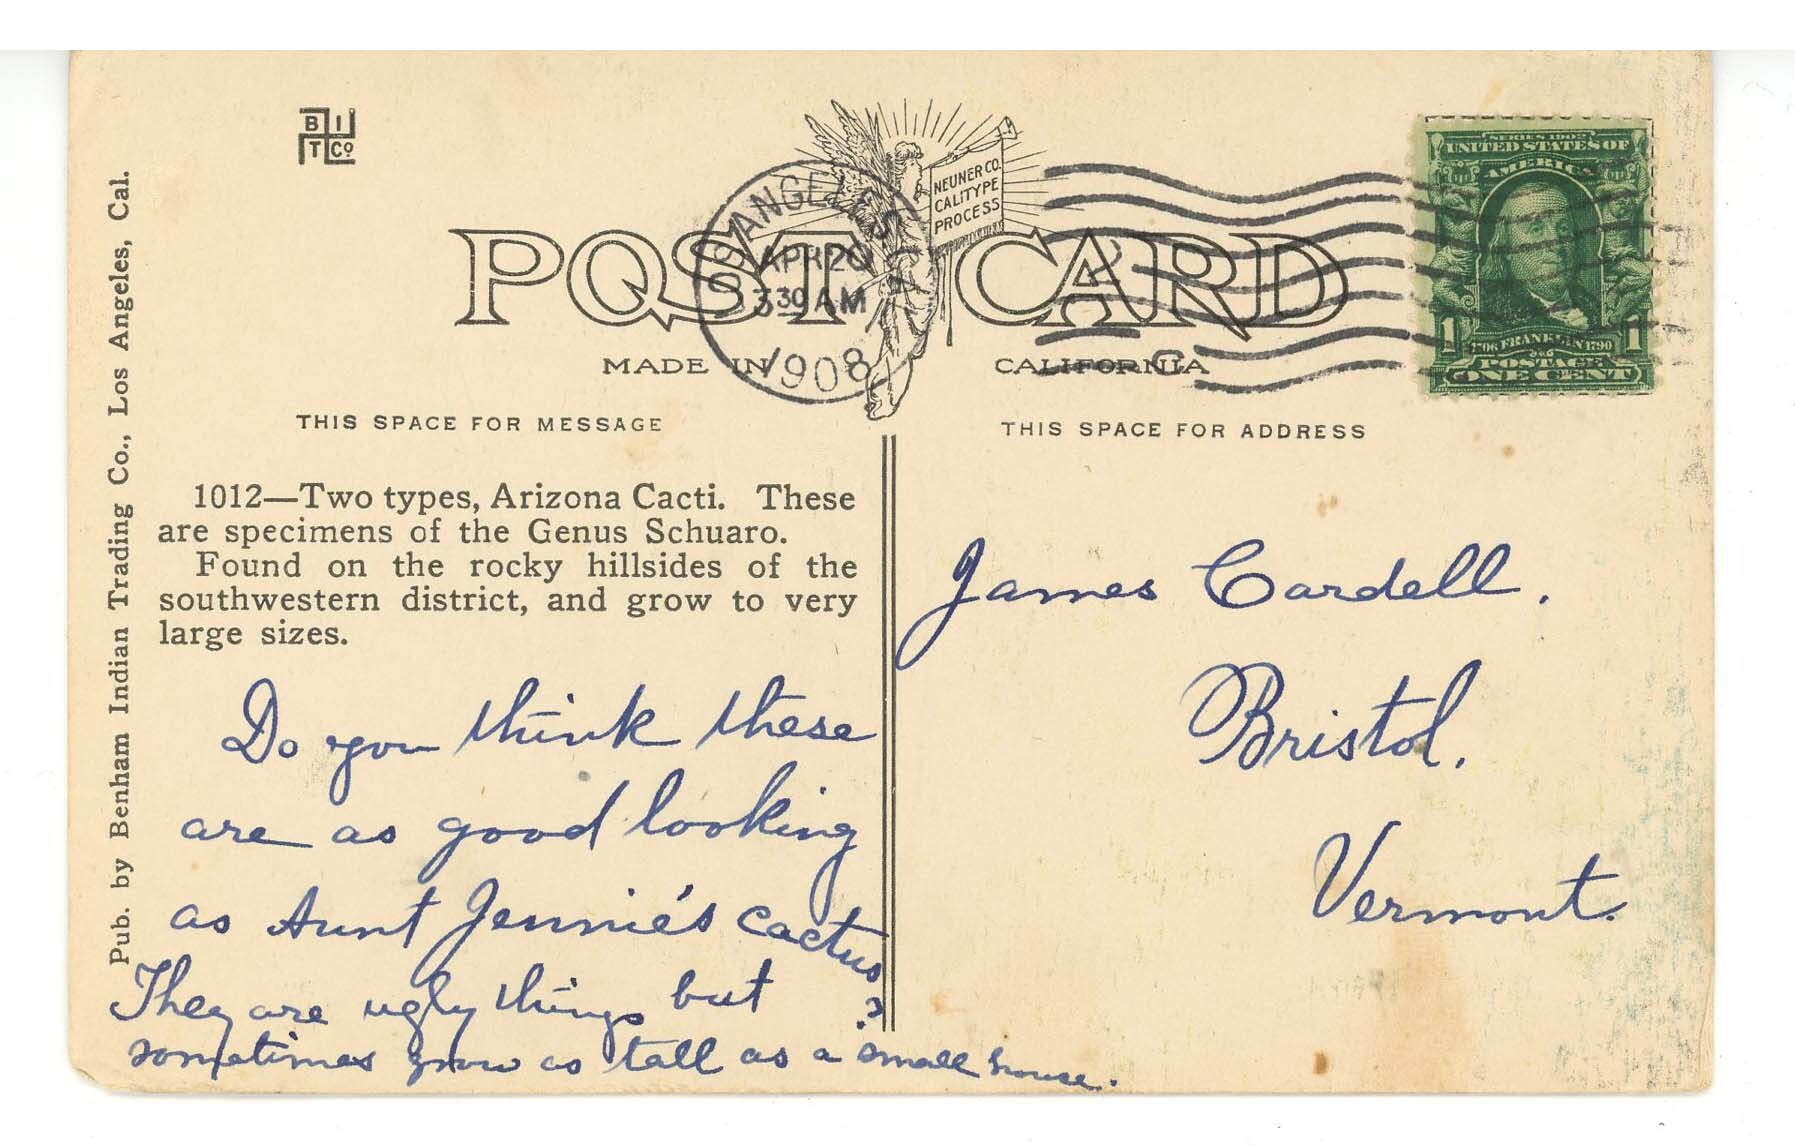 B I
T Cº
Pub. by Benham Indian Trading Co., Los Angeles, Cal.
NEUNER CO.
CALITYPE
PROCESS
POST CARD
LOS ANGELES
APR 20
3 30 AM
1908
MADE IN CALIFORNIA
SERIES 1902
UNITED STATES OF
AMERICA
1706 FRANKLIN 1790
1 1
POSTAGE
ONE CENT
THIS SPACE FOR MESSAGE
THIS SPACE FOR ADDRESS
1012—Two types, Arizona Cacti. These
are specimens of the Genus Schuaro.
Found on the rocky hillsides of the
southwestern district, and grow to very
large sizes.
Do you think these
are as good looking
as Aunt Jennie's cactus?
They are ugly things but
sometimes grow as tall as a small house.
James Cardell.
Bristol.
Vermont.